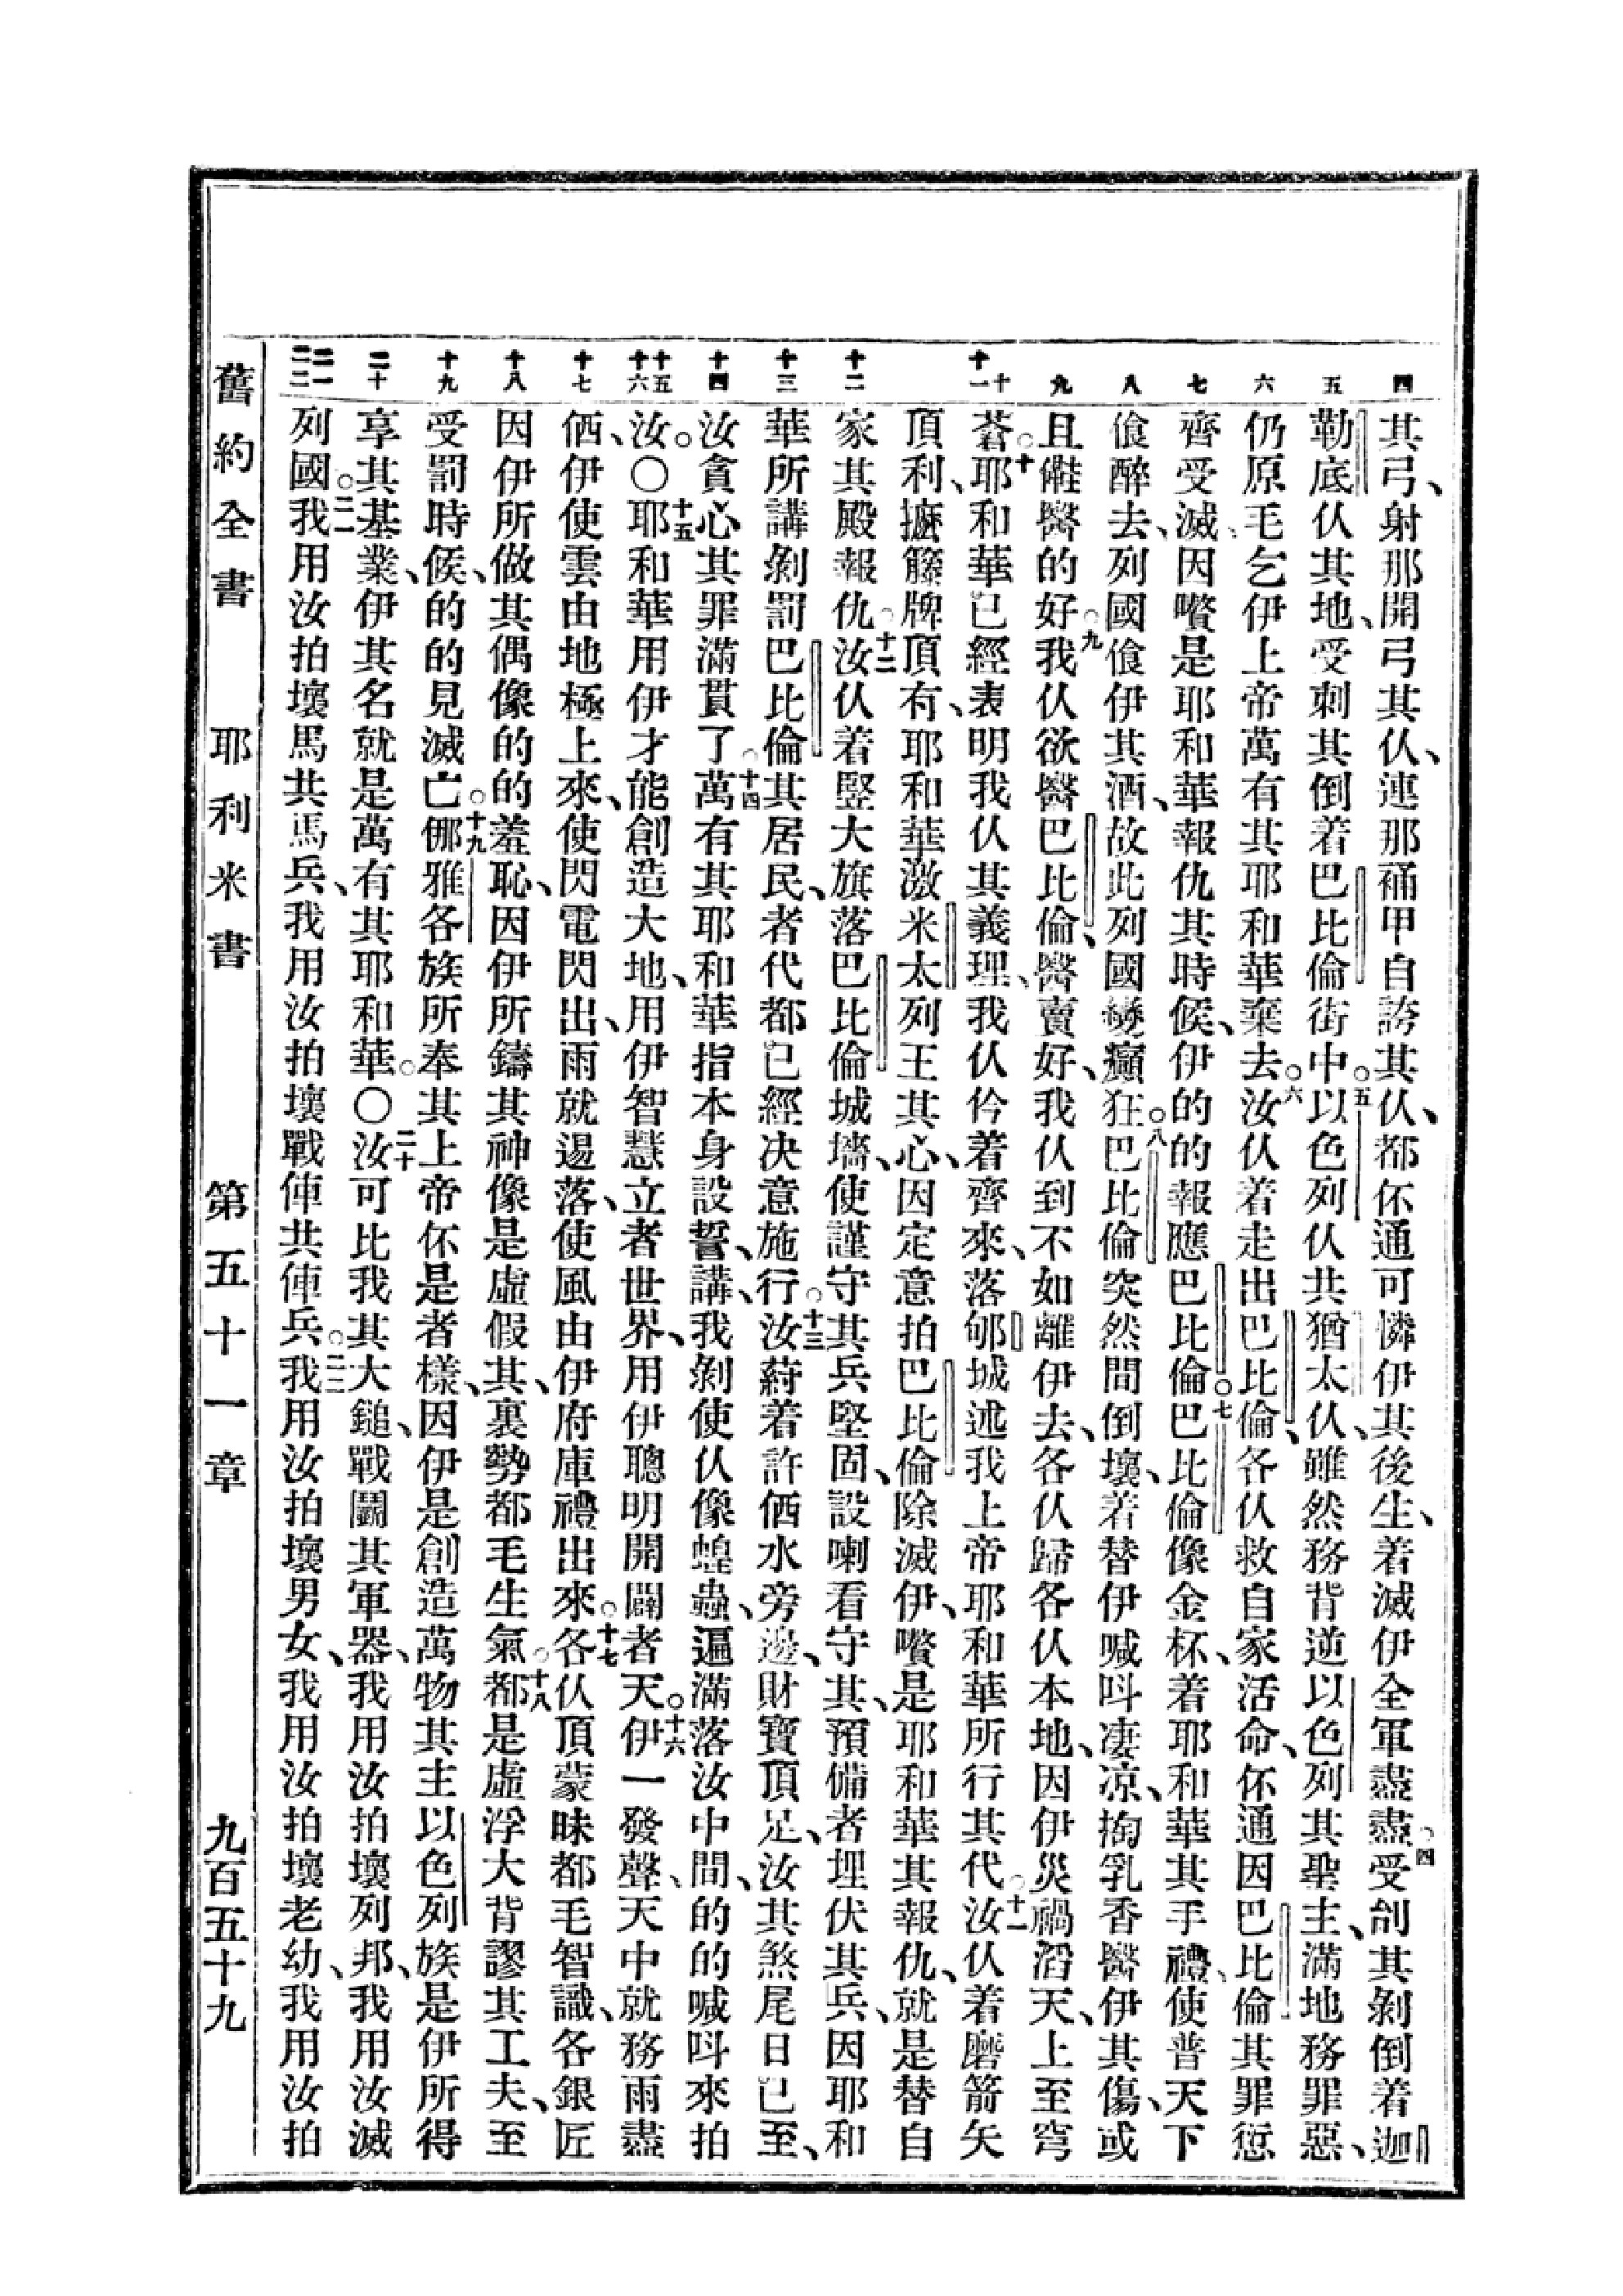 四 五 六 七 八 九 十 十一 十二 十三 十四 十五 十六 十七 十八 十九 二十 二一 二二
其弓、射那開弓其伩、連那䘄甲自誇其伩、都伓通可憐伊其後生、着滅伊全軍盡盡。四受刣其剝倒着迦
勒底伩其地、受刺其倒着巴比倫街中。五以色列伩共猶太伩、雖然務背逆以色列其聖主、滿地務罪惡、
仍原毛乞伊上帝萬有其耶和華棄去。六汝伩着走出巴比倫、各伩救自家活命、伓通因巴比倫其罪愆
齊受滅、因嚽是耶和華報仇其時候、伊的的報應巴比倫。七巴比倫像金杯、着耶和華其手禮、使普天下
飡醉去、列國飡伊其酒、故此列國變癲狂。八巴比倫突然間倒壞、着替伊喊呌淒凉、掏乳香醫伊其傷、或
且㑲醫的好。九我伩欲醫巴比倫、醫賣好、我伩到不如離伊去、各伩歸各伩本地、因伊災禍滔天、上至穹
蒼。十耶和華已經表明我伩其義理、我伩仱着齊來、落郇城述我上帝耶和華所行其代。十一汝伩着磨箭矢
頂利、攠籐牌頂有、耶和華激米太列王其心、因定意拍巴比倫除滅伊、嚽是耶和華其報仇、就是替自
家其殿報仇。十二汝伩着竪大旗落巴比倫城墻、使謹守其兵堅固、設喇看守其、預備者埋伏其兵、因耶和
華所講剝罰巴比倫其居民、者代都已經決意施行。十三汝蒔着許㑚水旁邊、財寶頂足、汝其煞尾日已至、
汝貪心其罪滿貫了。十四萬有其耶和華指本身設誓、講、我剝使伩像蝗蟲、遍滿落汝中間、的的喊呌來拍
汝。〇十五耶和華用伊才能創造大地、用伊智慧立者世界、用伊聰明開闢者天。十六伊一發聲、天中就務雨盡
㑚、伊使雲由地極上來、使閃電閃出、雨就逿落、使風由伊府庫禮出來。十七各伩頂蒙昧都毛智識、各銀匠
因伊所做其偶像的的羞恥、因伊所鑄其神像是虛假其、裏勢都毛生氣。十八都是虛浮大背謬其工夫、至
受罰時候、的的見滅亡。十九㑚雅各族所奉其上帝伓是者樣、因伊是創造萬物其主、以色列族是伊所得
享其基業、伊其名就是萬有其耶和華。〇二十汝可比我其大鎚、戰鬭其軍器、我用汝拍壞列邦、我用汝滅
列國。二一我用汝拍壞馬共馬兵、我用汝拍壞戰俥共俥兵。二二我用汝拍壞男女、我用汝拍壞老幼、我用汝拍
舊約全書 耶利米書 第五十一章 九百五十九